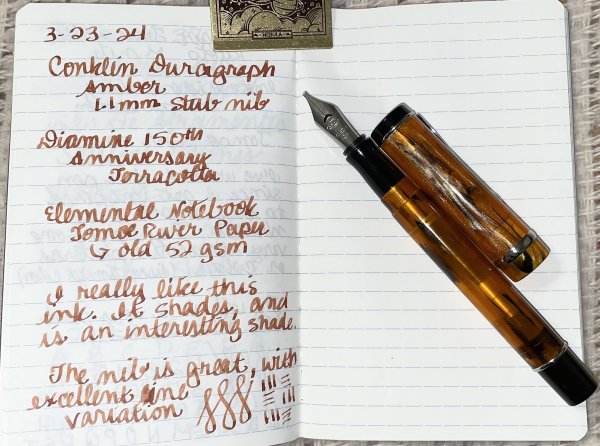 3-23-24
Conklin Duragraph
Amber
1.1mm stub nib
Diamine 150th
Anniversary
Terracotta
Elemental Notebook
Tomoe River Paper
↳ old 52 gsm
I really like this
ink. It shades, and
is an interesting shade.
The nib is great, with
excellent line
variation